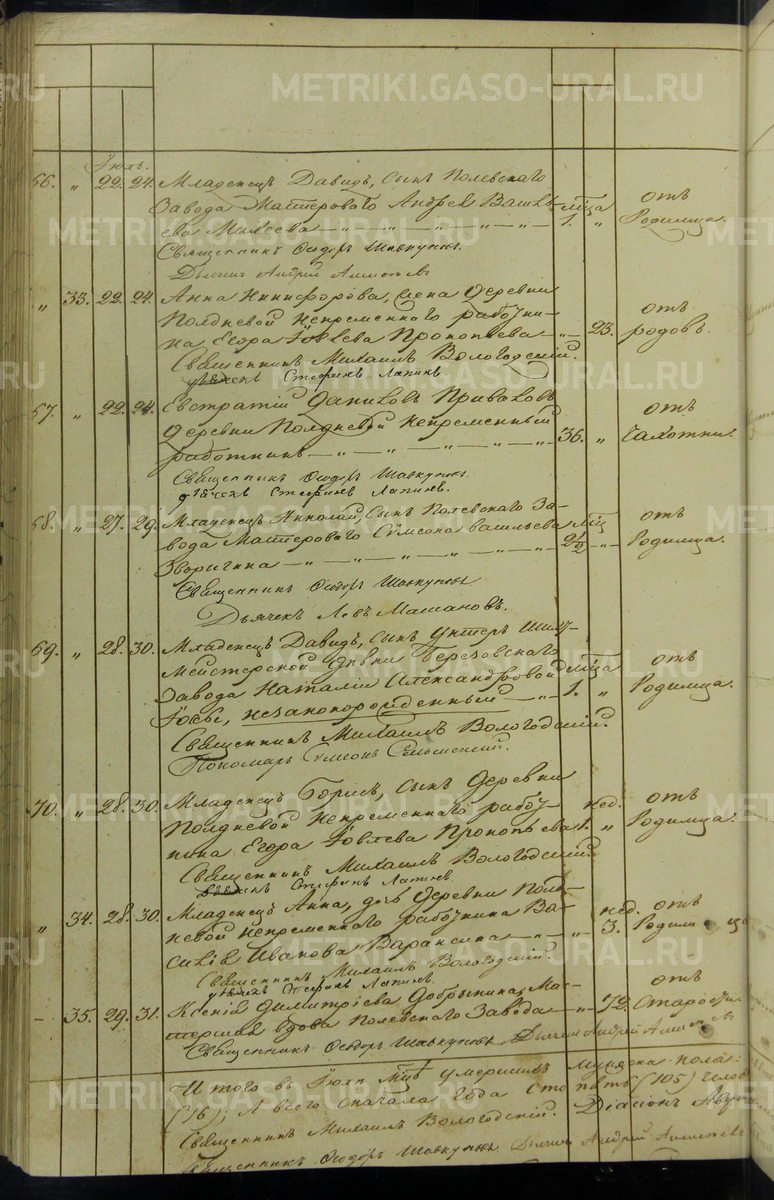 METRIKI.GASO-URAL.RU
Іюль.
66. " 22. 24. Младенецъ Давидъ, сынъ Полевскаго
Завода Мастероваго Андрея
" " " " " мѣсца 1. " отъ Родимца.
Священникъ Ѳеодоръ Шавкуновъ.
Дьячекъ Андрей
" 33. 22. 24. Анна Никифорова, жена деревни
Полдневой непременнаго работни-
ка Егора Іовлева Прокопьева " 23. отъ родовъ.
Священникъ Михаилъ Вологодскій.
Стефанъ Лапинъ.
67. " 22. 24. Евстратій Даниловъ Приваловъ
деревни Полдневой непременный
работникъ " " " " " 36. " отъ Чахотки.
Священникъ Ѳеодоръ Шавкуновъ.
дьячекъ Стефанъ Лапинъ.
68. " 27. 29. Младенецъ Николай, сынъ Полевскаго За-
вода Мастероваго Сѵмеона Васильева
Зворигина " " " " " мѣц 2½ " отъ Родимца.
Священникъ Ѳеодоръ Шавкуновъ
Дьячекъ Левъ
69. " 28. 30. Младенецъ Давидъ, сынъ Унтеръ Шихт-
мейстерской дѣвки Березовскаго
Завода Наталіи Александровой
незаконорожденный " мѣсца 1. " отъ Родимца.
Священникъ Михаилъ Вологодскій.
Пономарь Сѵмеонъ
70. " 28. 30. Младенецъ Борисъ, сынъ деревни
Полдневой непременнаго работ-
ника Егора Іовлева Прокопьева нед. 1. " отъ Родимца.
Священникъ Михаилъ Вологодскій.
Стефанъ Лапинъ
" 34. 28. 30. Младенецъ Анна, дчь деревни Полд-
невой непременнаго работника Ва-
силія Иванова Вараксина " " нед. 3. отъ Родимца
Священникъ Михаилъ Вологодскій.
дьячекъ Стефанъ Лапинъ.
- 35. 29. 31. Ксенія Димитріева Добрынина, Мас-
терская вдова Полевскаго Завода " 72. отъ Старости
Священникъ Ѳеодоръ Шавкуновъ Дьячекъ Андрей
Итого въ Іюлѣ мцѣ умершихъ мужеска пола:
(16); А всего сначала года сто пять (105) челов
Священникъ Михаилъ Вологодскій. Діаконъ
Священникъ Ѳеодоръ Шавкуновъ Дьячекъ Андрей